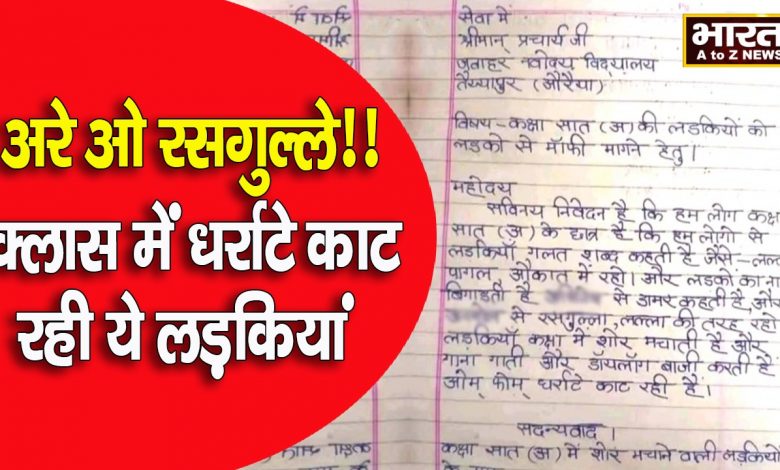 अरे ओ रसगुल्ले!!
क्लास में धर्राटे काट
रही ये लड़कियां
भारत
A to Z NEWS
सेवा में
श्रीमान् प्रचार्य जी
जवाहर नवोदय विद्यालय
तैय्यापुर (औरैया)
विषय - कक्षा सात (अ) की लडकियों को
लडको से मॉफी मागने हेतु।
महोदय
सविनय निवेदन है कि हम लोग कक्षा
सात (अ) के छात्र है कि हम लोगो से
लडकियाँ गलत शब्द कहती है जैसे-
पागल औकात में रहो। और लडको का नाम
बिगाडती है से डामर कहती है,
से रसगुल्ला, लल्ला की तरह रहो
लडकियाँ कक्षा में शोर मचाती है और
गाना गाती और डॉयलॉग बाजी करती है
ओम् फोम् धर्राटे काट रही है।
सदन्यवाद।
कक्षा सात (अ) में शोर मचाने वाली लडकियों